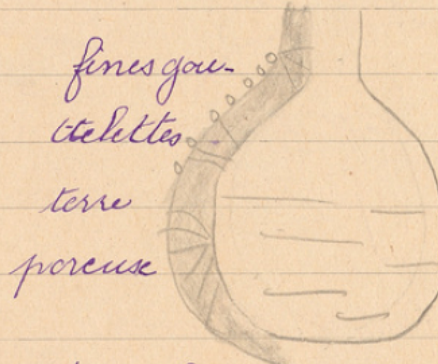 fines gou-
ttelettes
terre
poreuse